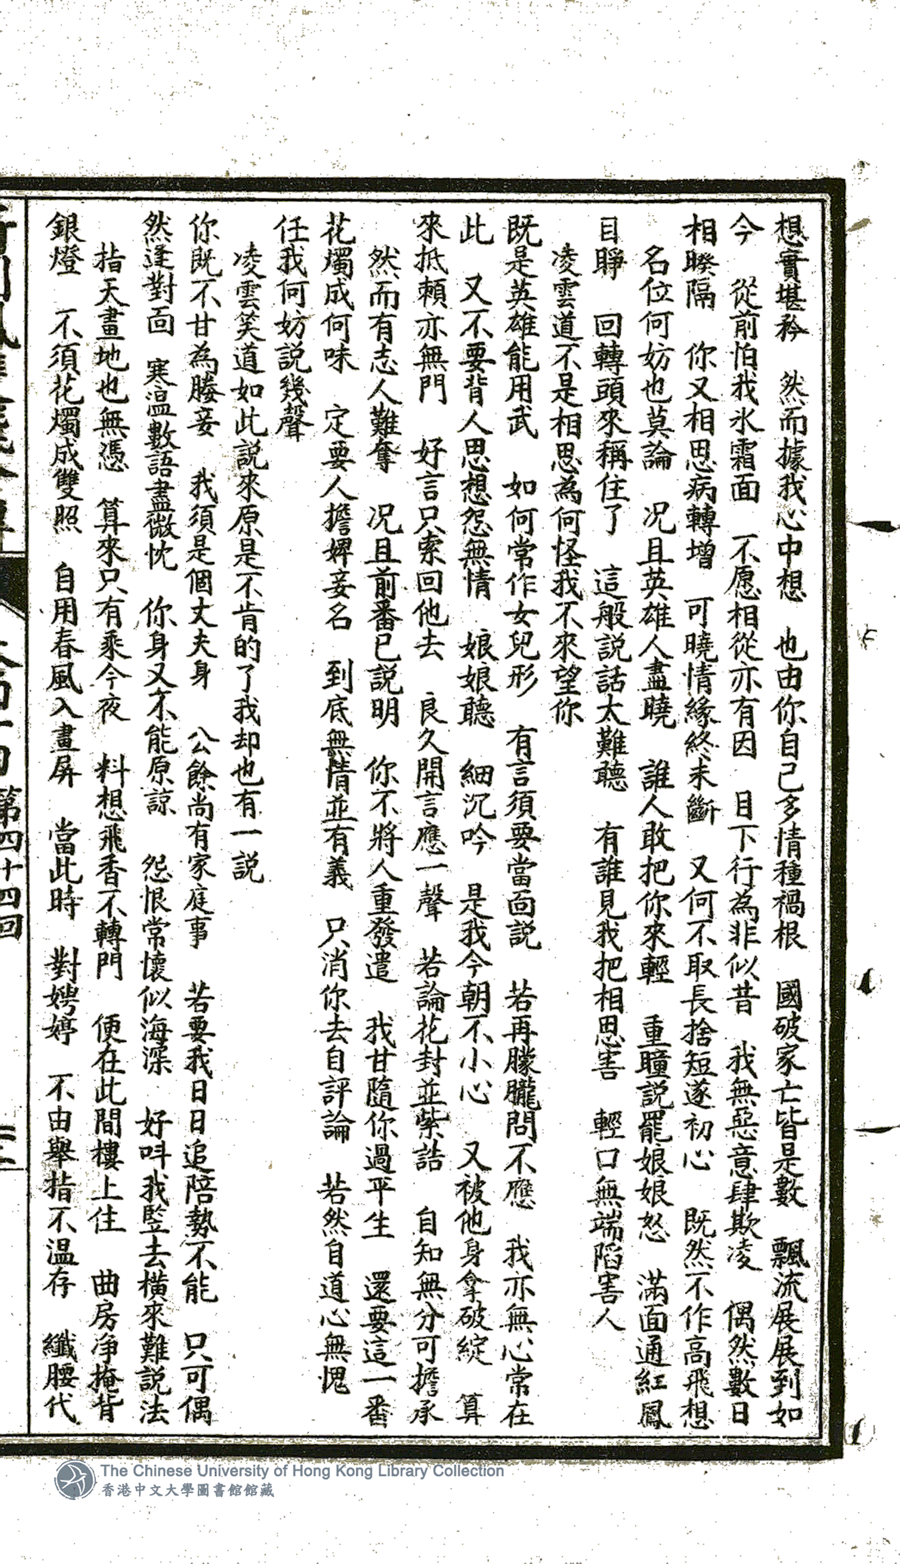 想實堪矜　然而據我心中想　也由你自己多情種禍根　國破家亡皆是數　飄流展展到如
今　從前怕我氷霜面　不愿相從亦有因　目下行為非似昔　我無惡意肆欺凌　偶然數日
相暌隔　你又相思病轉增　可曉情緣終未斷　又何不取長捨短遂初心　既然不作高飛想
名位何妨也莫論　况且英雄人盡曉　誰人敢把你來輕　重瞳説罷娘娘怒　滿面通紅鳳
目睜　回轉頭來稱住了　這般説話太難聽　有誰見我把相思害　輕口無端陷害人
凌雲道不是相思為何怪我不來望你
既是英雄能用武　如何常作女兒形　有言須要當面説　若再朦朧問不應　我亦無心常在
此　又不要背人思想怨無情　娘娘聽　細沉吟　是我今朝不小心　又被他身拿破綻　算
來抵賴亦無門　好言只索回他去　良久開言應一聲　若論花封並紫誥　自知無分可擔承
然而有志人難奪　况且前番已説明　你不將人重發遣　我甘隨你過平生　還要這一番
花燭成何味　定要人擔婢妾名　到底無情並有義　只消你去自評論　若然自道心無愧
任我何妨説幾聲
凌雲笑道如此説來原是不肯的了我却也有一説
你既不甘為媵妾　我須是個丈夫身　公餘尚有家庭事　若要我日日追陪勢不能　只可偶
然逢對面　寒温數語盡微忱　你身又不能原諒　怨恨常懷似海深　好呌我豎去橫來難説法
指天畫地也無憑　算來只有乘今夜　料想飛香不轉門　便在此間樓上住　曲房净掩背
銀燈　不須花燭成雙照　自用春風入畫屏　當此時　對娉婷　不由舉指不温存　纖腰代
第四十四回
The Chinese University of Hong Kong Library Collection
香港中文大學圖書館館藏